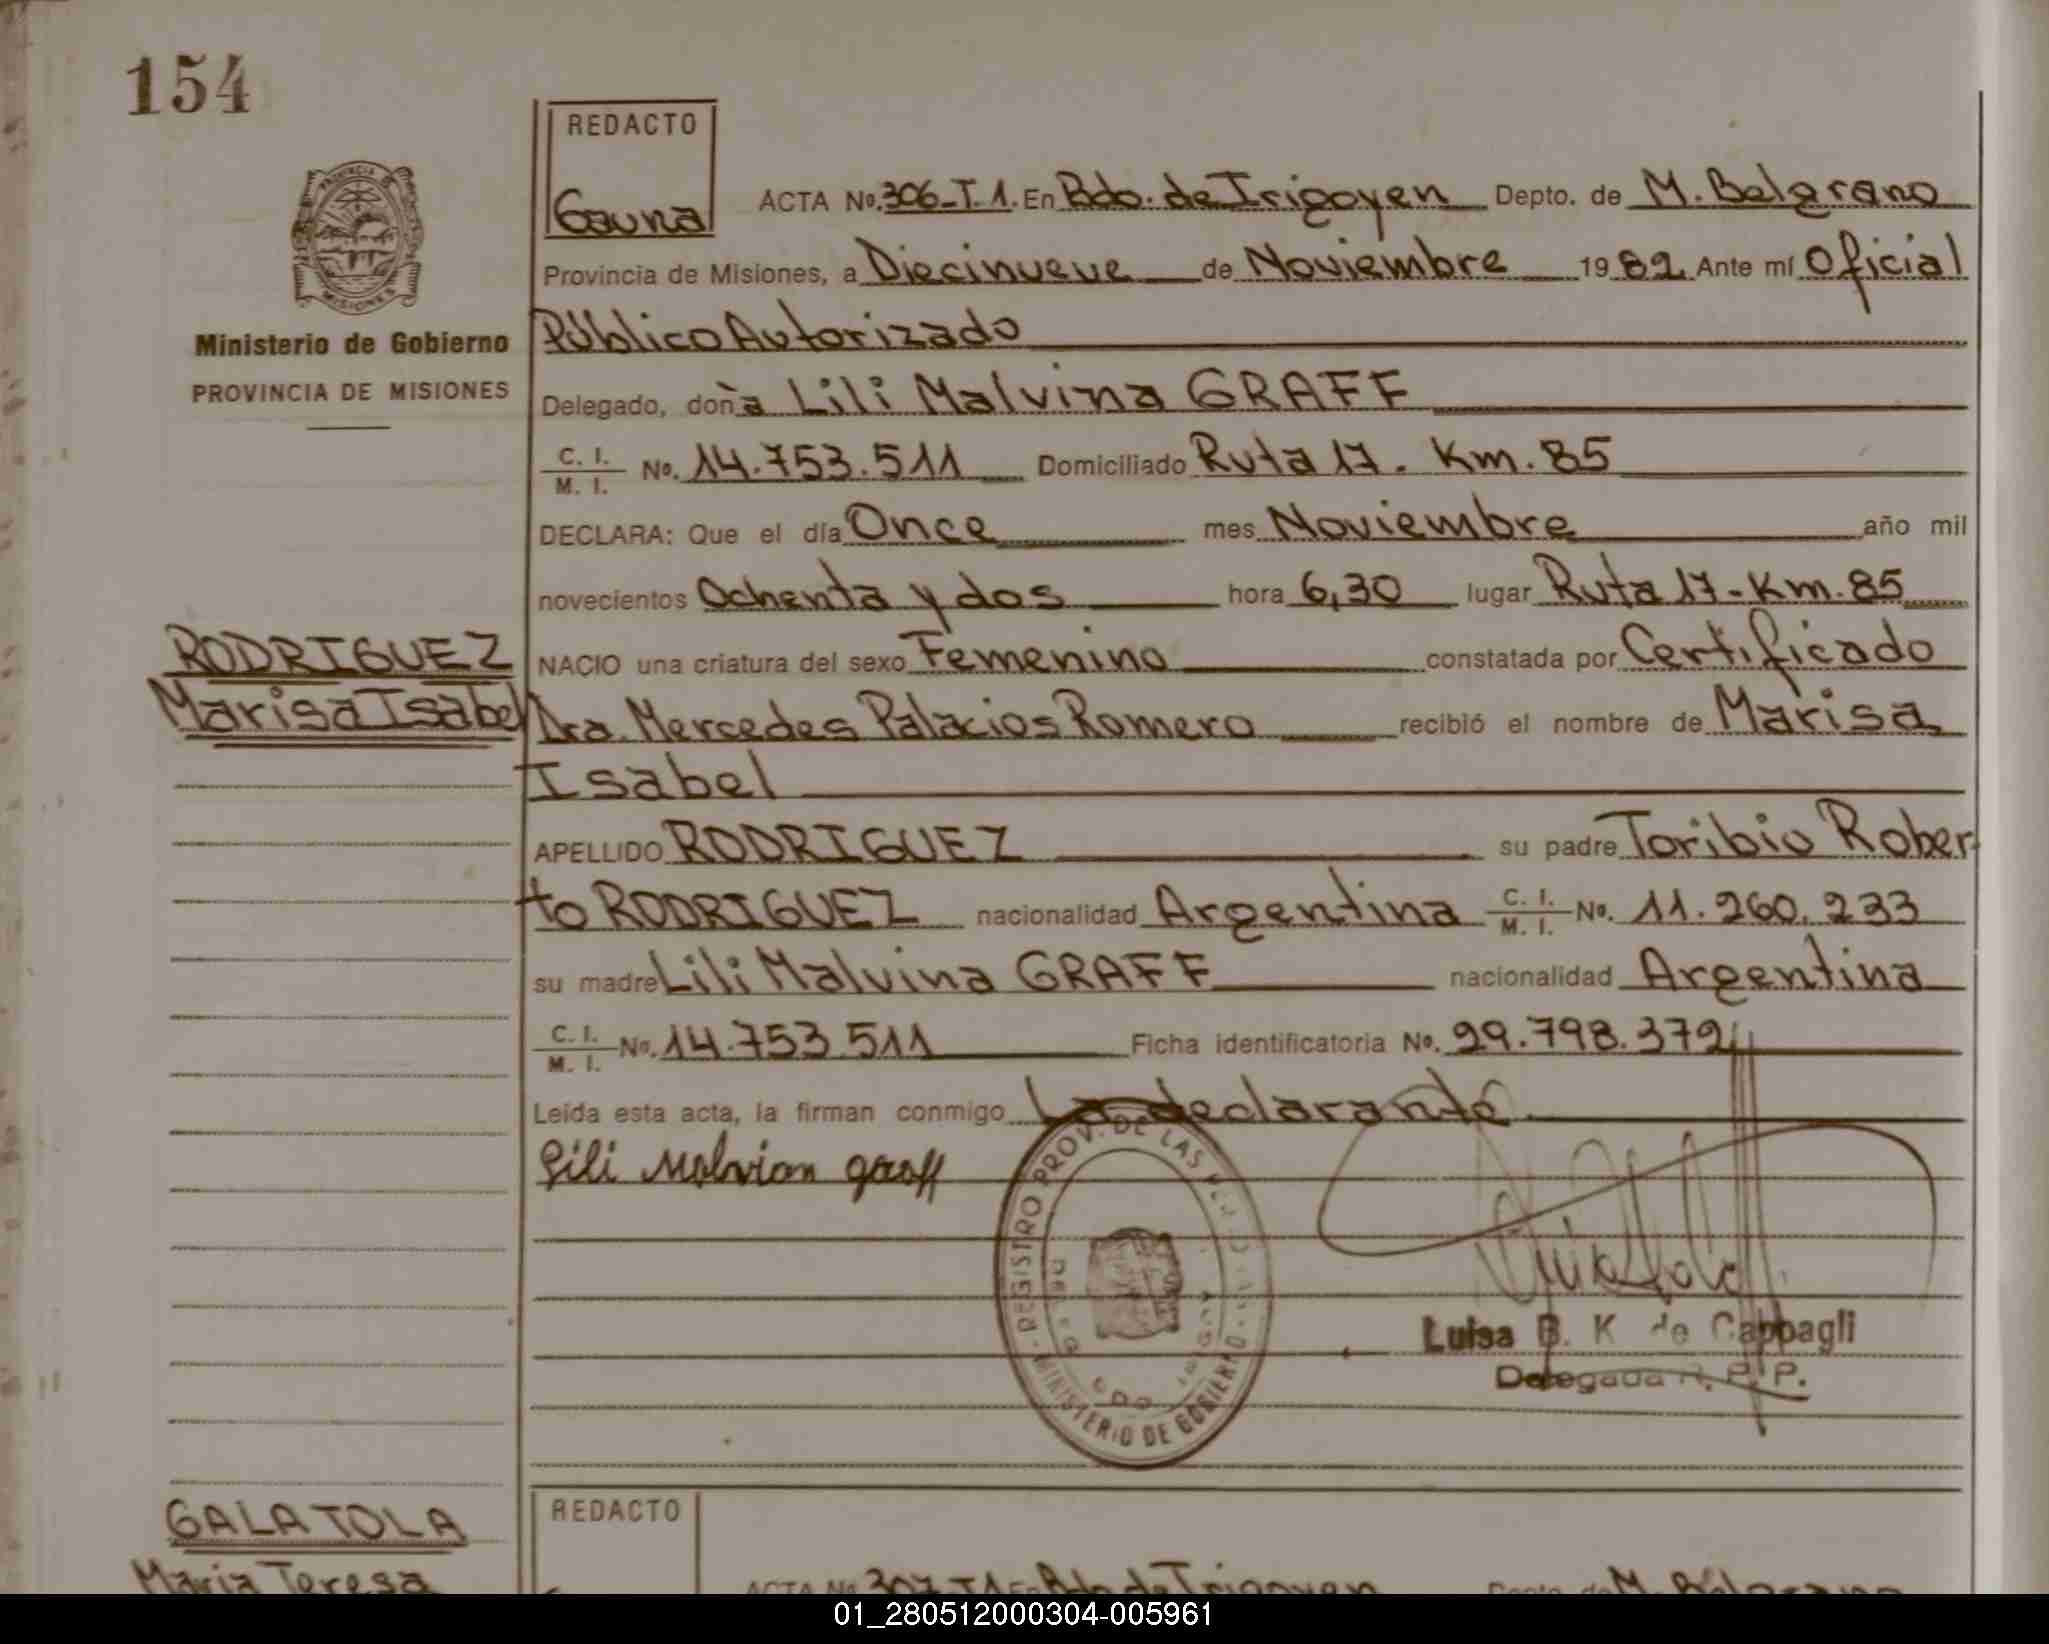 154
REDACTO
Gauna
PROVINCIA D
MISIONES
Ministerio de Gobierno
PROVINCIA DE MISIONES
ACTA No. 306-T.1. En Bdo. de Irigoyen Depto. de M. Belgrano
Provincia de Misiones, a Diecinueve de Noviembre 1982 Ante mí Oficial
Público Autorizado
Delegado, doña Lili Malvina GRAFF
C. I. / M. I. No. 14.753.511 Domiciliado Ruta 17. Km. 85
DECLARA: Que el día Once mes Noviembre año mil
novecientos Ochenta y dos hora 6,30 lugar Ruta 17-Km.85
RODRIGUEZ
Marisa Isabel
NACIO una criatura del sexo Femenino constatada por Certificado
Dra. Mercedes Palacios Romero recibió el nombre de Marisa
Isabel
APELLIDO RODRIGUEZ su padre Toribio Rober-
to RODRIGUEZ nacionalidad Argentina C. I. / M. I. No. 11.260.233
su madre Lili Malvina GRAFF nacionalidad Argentina
C. I. / M. I. No. 14.753.511 Ficha identificatoria No. 29.798.372
Leída esta acta, la firman conmigo La declarante.
Lili Malvian graff
REGISTRO PROV. DE LAS
MINISTERIO DE GOBIERNO
Luisa B. K. de Cappagli
Delegada R. P. P.
GALATOLA
Maria Teresa
REDACTO
ACTA No. 307-T.1 En Bdo. de Irigoyen Depto. de M. Belgrano
01_280512000304-005961